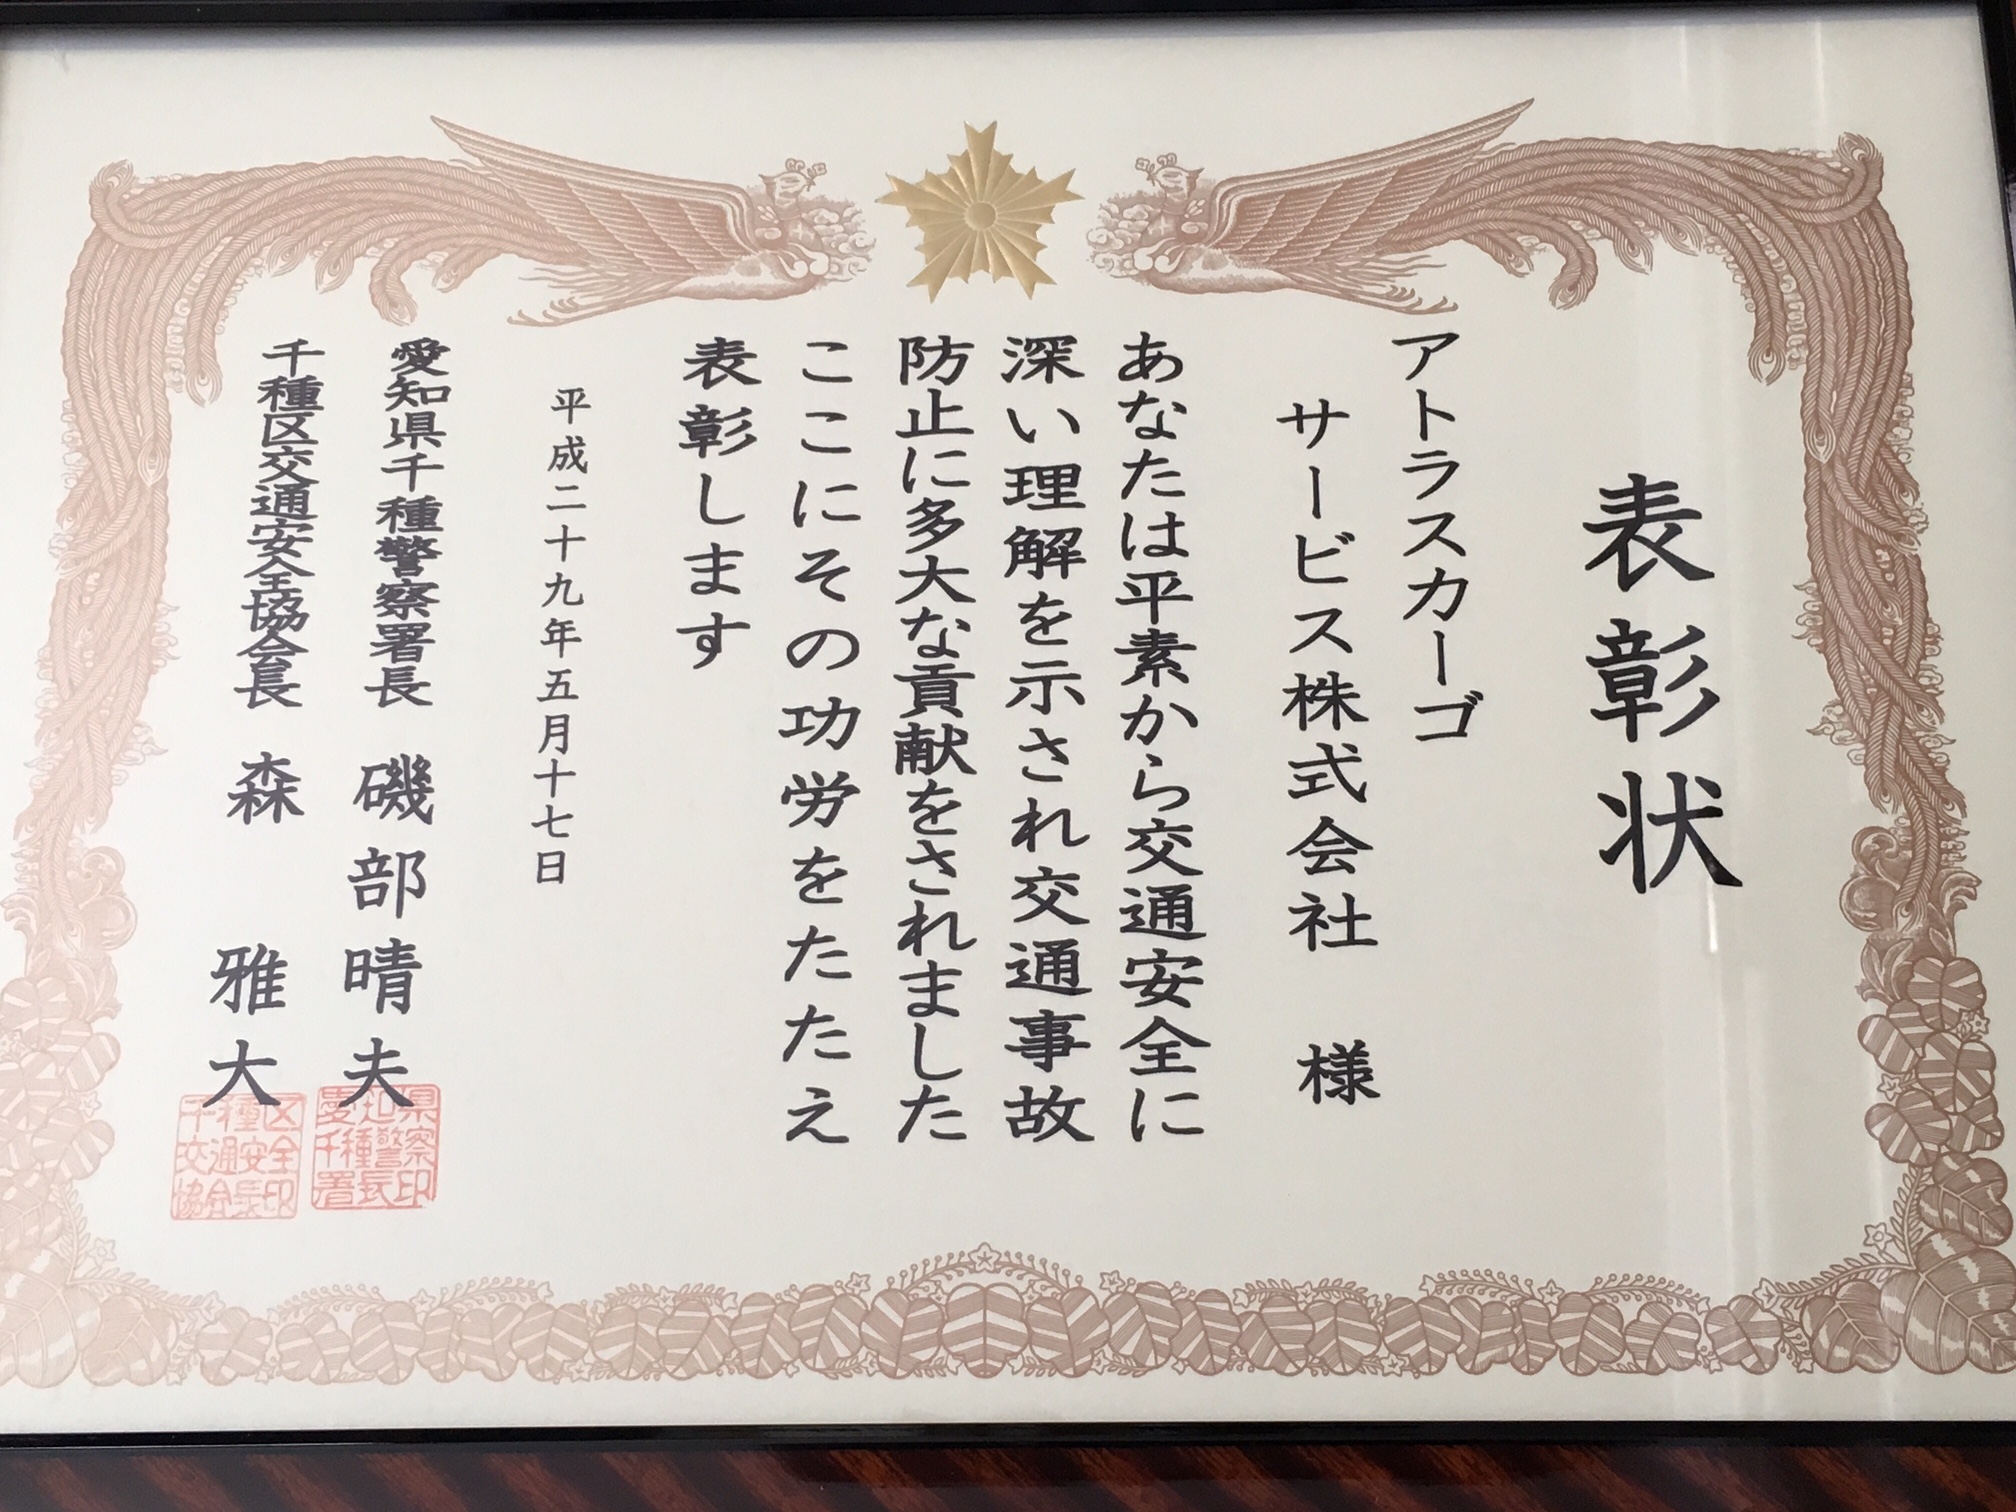 表彰状
アトラスカーゴ
サービス株式会社 様
あなたは平素から交通安全に
深い理解を示され交通事故
防止に多大な貢献をされました
ここにその功労をたたえ
表彰します
平成二十九年五月十七日
愛知県千種警察署長 磯部晴夫
愛知県
千種警察
署長印
千種区交通安全協会長 森 雅大
千種区
交通安全
協会長印